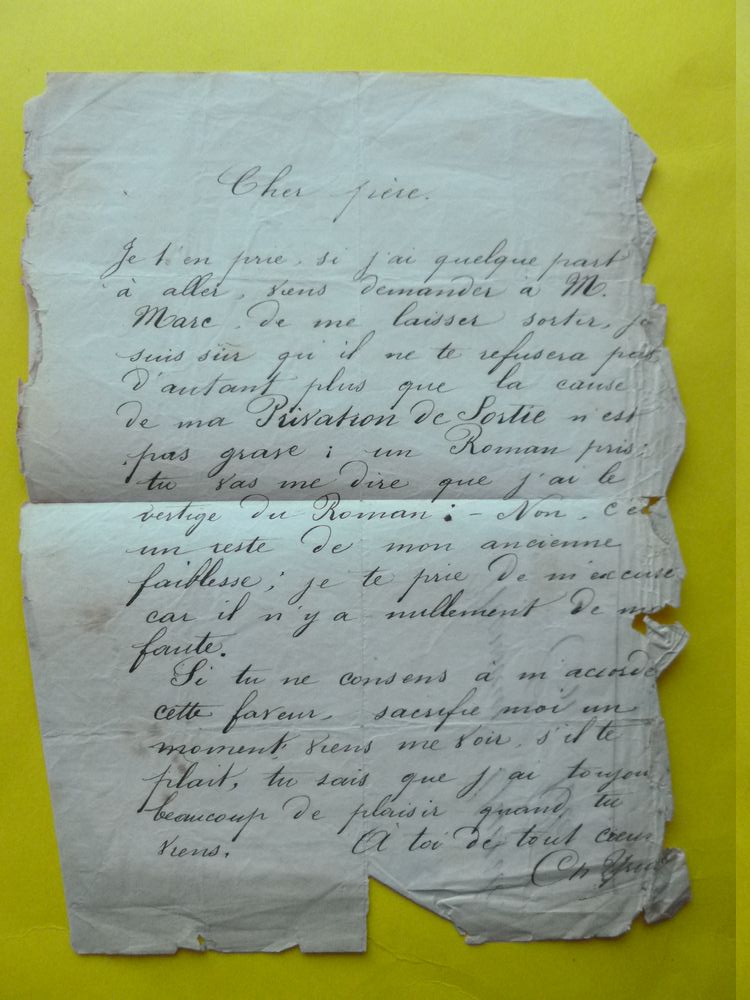 Cher père.
Je t'en prie, si j'ai quelque part
à aller, viens demander à M.
Marc, de me laisser sortir, je
suis sûr qu'il ne te refusera pas
d'autant plus que la cause
de ma Privation de Sortie n'est
pas grave : un Roman pris;
tu vas me dire que j'ai le
vertige du Roman : - Non, c'es
un reste de mon ancienne
faiblesse; je te prie de m'excuse
car il n'y a nullement de ma
faute.
Si tu ne consens à m'accorde
cette faveur, sacrifie moi un
moment viens me voir, s'il te
plait, tu sais que j'ai toujou
beaucoup de plaisir quand tu
viens. A toi de tout cœur
Ch.